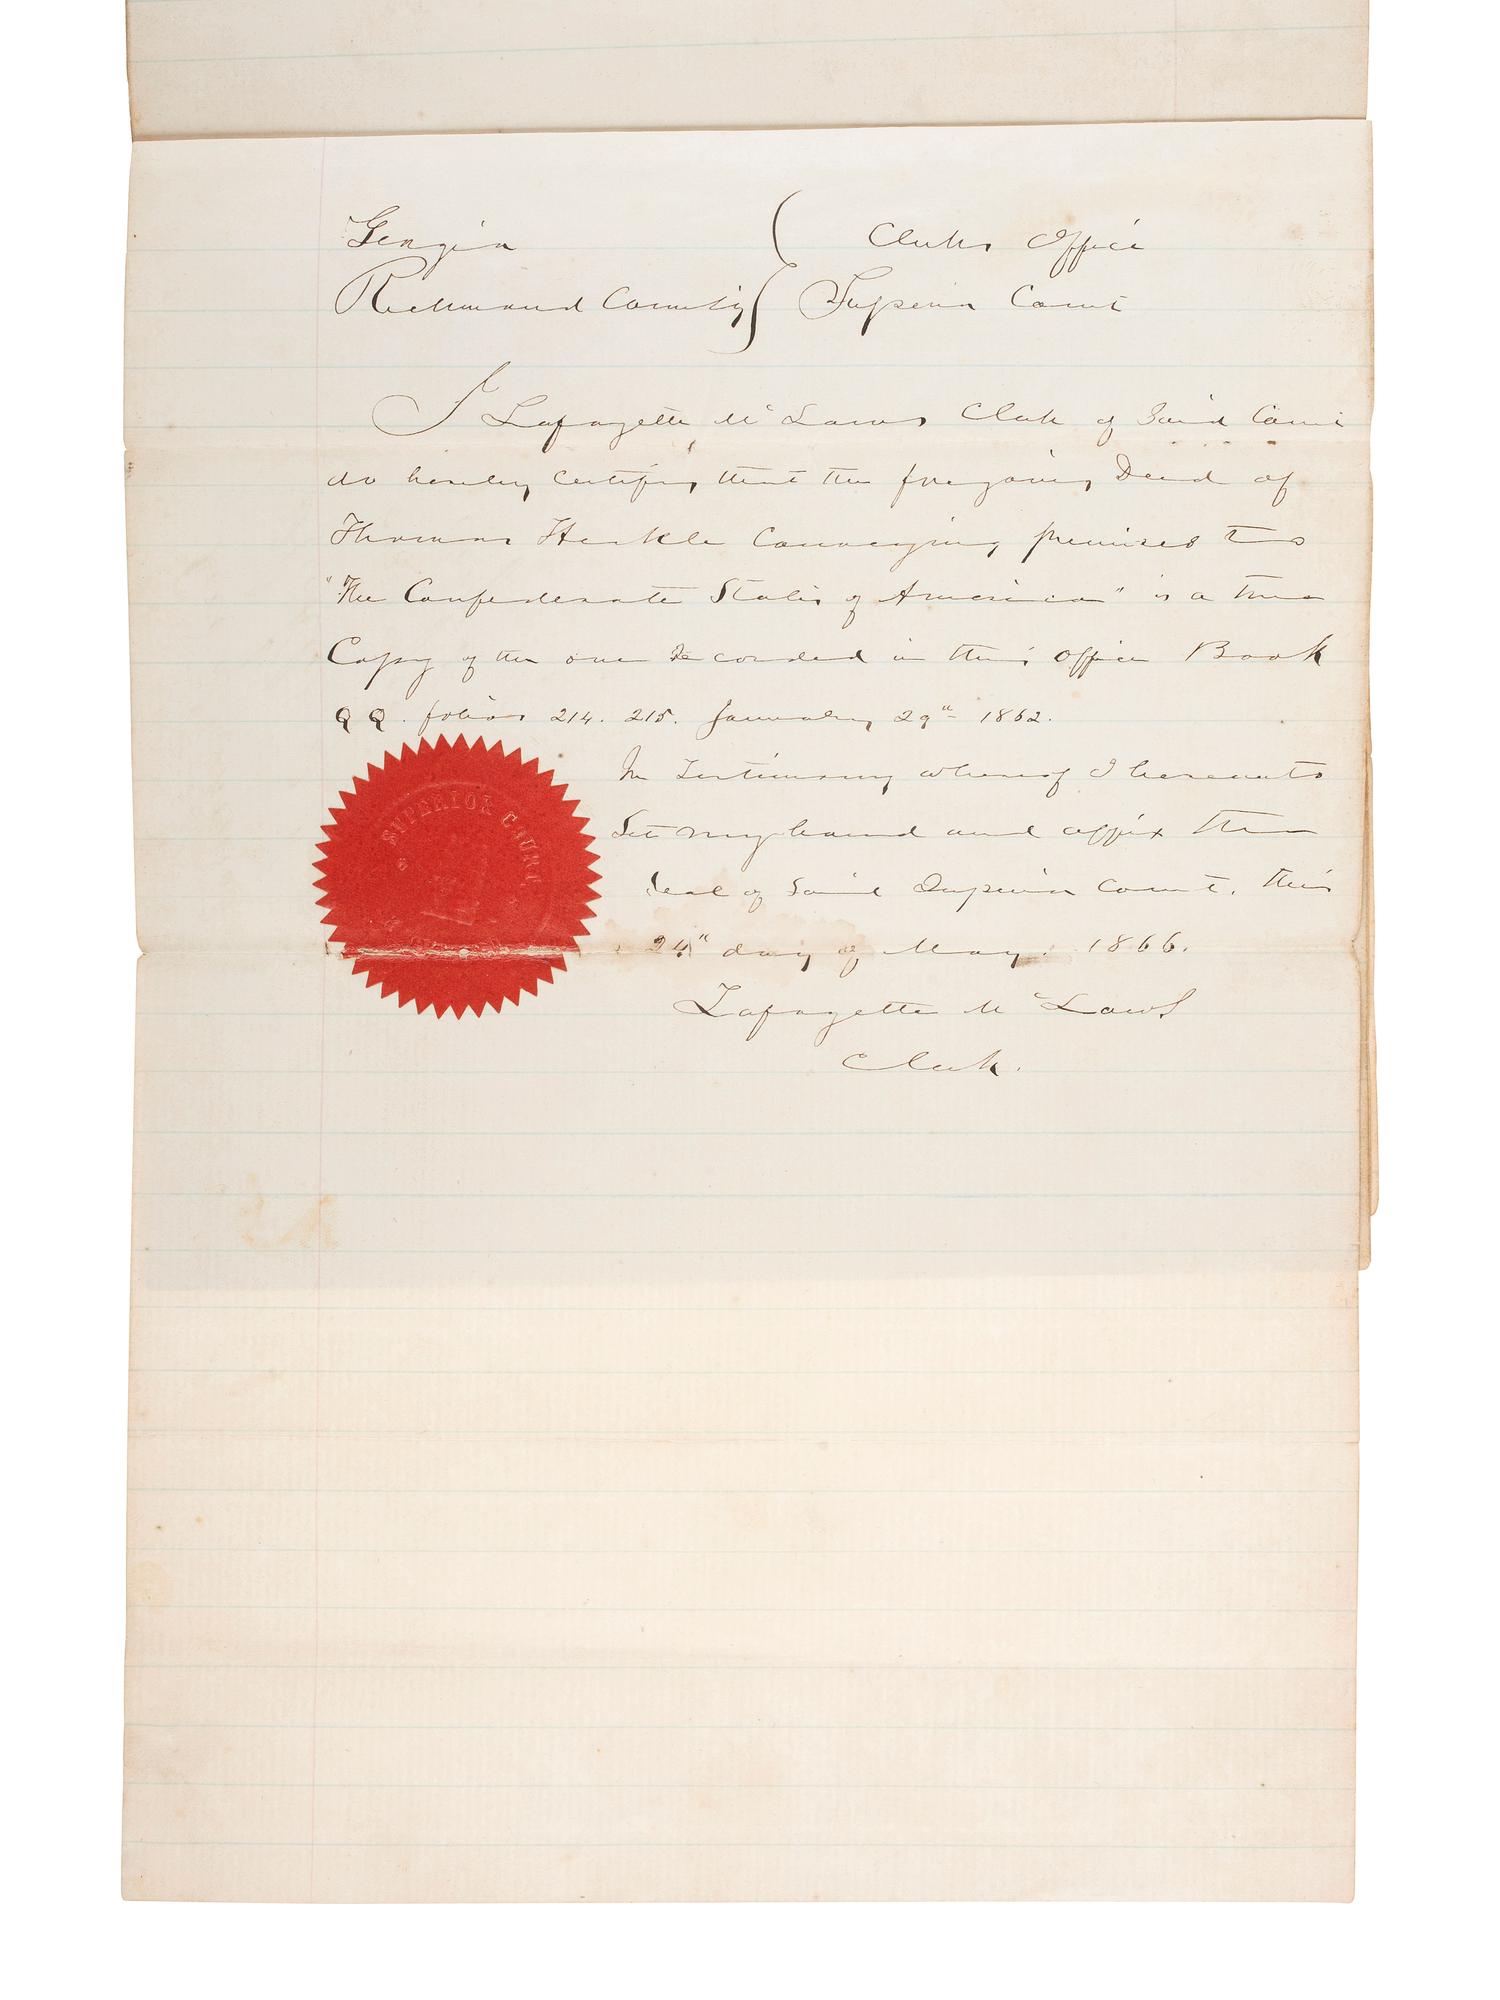 Georgia
Richmond County
Clerks Office
Superior Court
I Lafayette McLaws Clerk of Said Court
do hereby Certify, that the foregoing Deed of
Thomas Heckle Conveying premises to
"The Confederate States of America" is a true
Copy of the one Recorded in this Office Book
QQ. folios 214. 215. January 29" 1862.
In Testimony whereof I hereunto
Set my hand and affix the
Seal of Said Superior Court. this
24" day of May. 1866.
Lafayette McLaws
Clerk.
SUPERIOR COURT